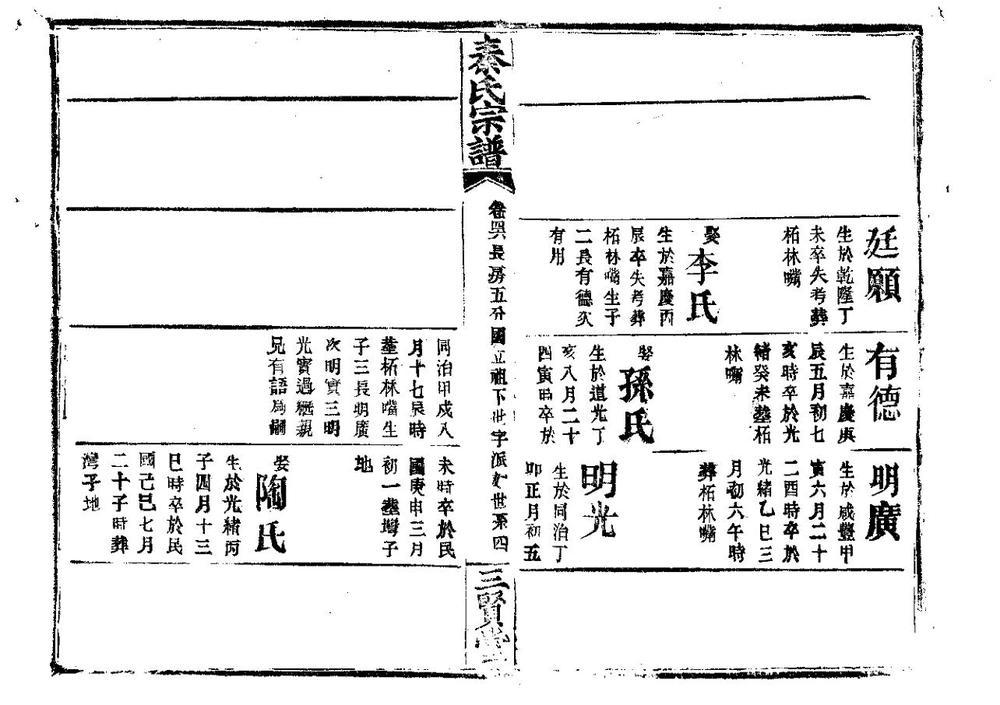 廷願
生於乾隆丁
未卒失考葬
柘林嘴
娶李氏
生於嘉慶丙
辰卒失考葬
柘林嘴生子
二長有德次
有用
有德
生於嘉慶庚
辰五月初七
亥時卒於光
緒癸未塟柘
林嘴
娶孫氏
生於道光丁
亥八月二十
四寅時卒於
明廣
生於咸豐甲
寅六月二十
二酉時卒於
光緒乙巳三
月初六午時
葬柘林嘴
明光
生於同治丁
卯正月初五
秦氏宗譜
卷 長房五分國立祖下世字派 世系四
三賢堂
同治甲戌八
月十七辰時
塟柘林嘴生
子三長明廣
次明實三明
光實過繼親
兄有語為嗣
未時卒於民
國庚申三月
初一塟灣子
地
娶陶氏
生於光緒丙
子四月十三
巳時卒於民
國己巳七月
二十子時葬
灣子地